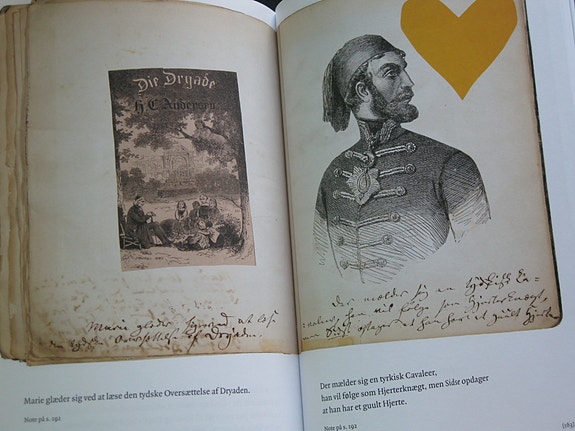 Die Dryade
H C Andersen
Marie glæder sig ved at læse
den tydske Oversættelse af Dryaden.
Marie glæder sig ved at læse den tydske Oversættelse af Dryaden.
Note på s. 192
Der mælder sig en tyrkisk Ca-
valeer, han vil følge som Hjerterknægt,
men Sidse opdager at han har et guult Hjerte
Der mælder sig en tyrkisk Cavaleer,
han vil følge som Hjerterknægt, men Sidse opdager
at han har et guult Hjerte.
Note på s. 192
[183]